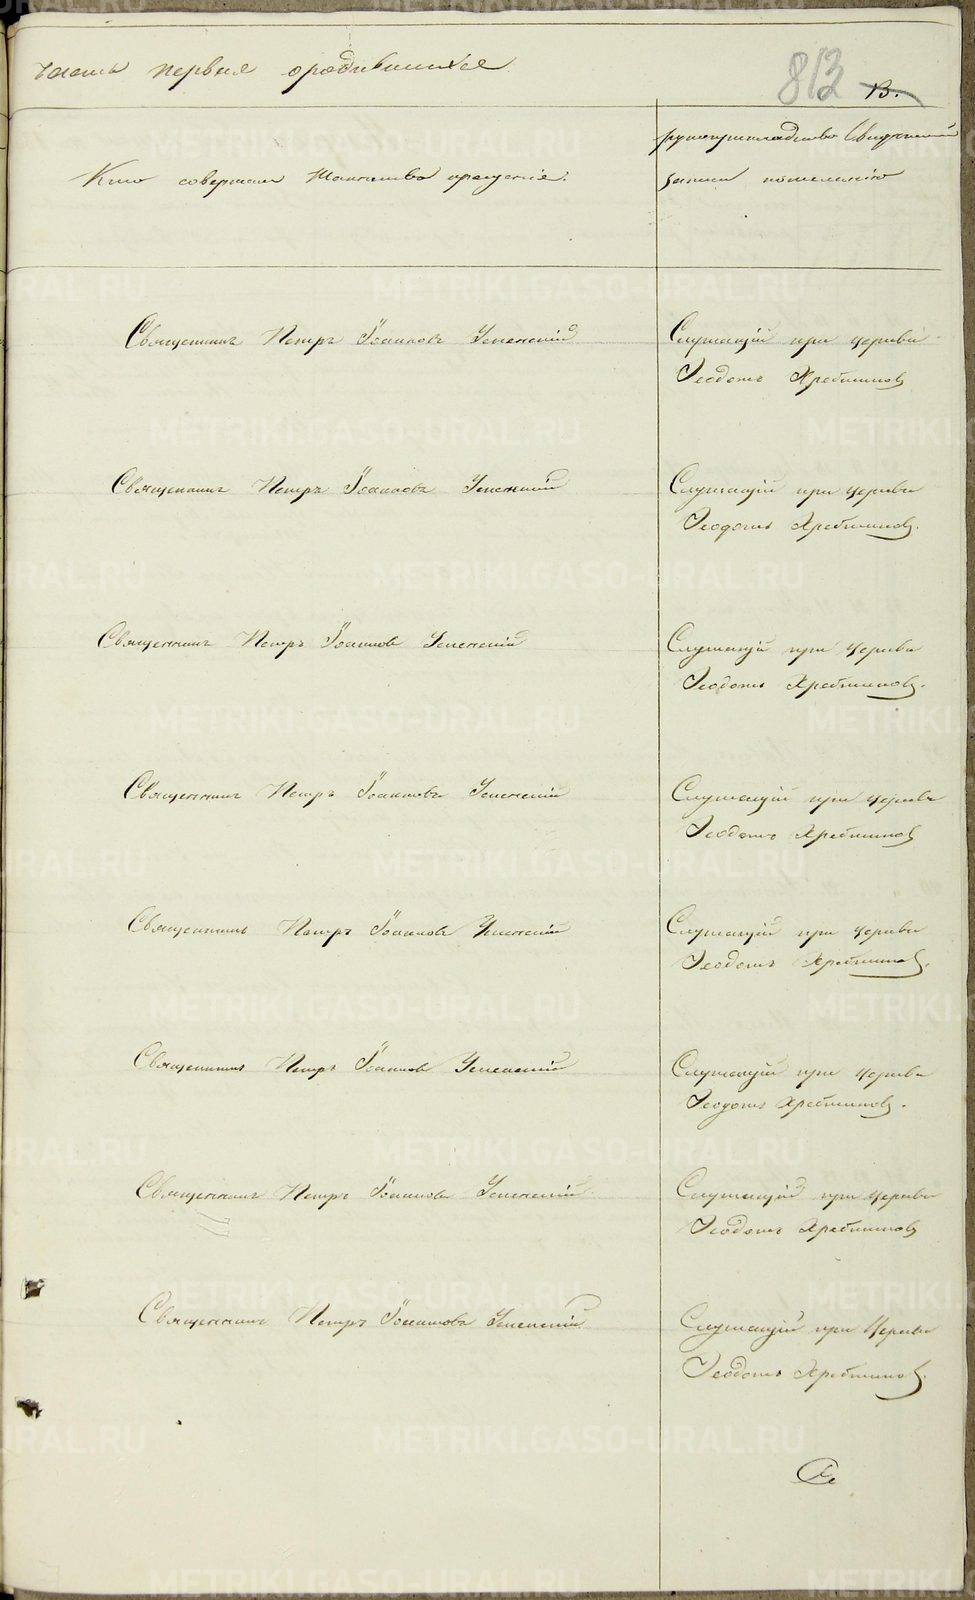 часть первая ородившихся
813 13.
Кто совершал Таинство крещенія.
рукоприкладство свидетелей
записи пожеланію
Священникъ Петръ Іоанновъ Успенскій
Служащій при церкви
Ѳеодотъ Хребтиковъ
Священникъ Петръ Іоанновъ Успенскій
Служащій при церкви
Ѳеодотъ Хребтиковъ.
Священникъ Петръ Іоаннов Успенскій
Служащій при церкви
Ѳеодотъ Хребтиковъ.
Священникъ Петръ Іоанновъ Успенскій
Служащій при церкви
Ѳеодотъ Хребтиковъ
Священникъ Петръ Іоанновъ Успенскій
Служащій при церкви
Ѳеодотъ Хребтиковъ.
Священникъ Петръ Іоаннов Успенскій
Служащій при церкви
Ѳеодотъ Хребтиковъ.
Священникъ Петръ Іоанновъ Успенскій
Служащій при церкви
Ѳеодотъ Хребтиковъ
Священникъ Петръ Іоанновъ Успенскій
Служащій при Церкви
Ѳеодотъ Хребтиковъ.
METRIKI.GASO-URAL.RU